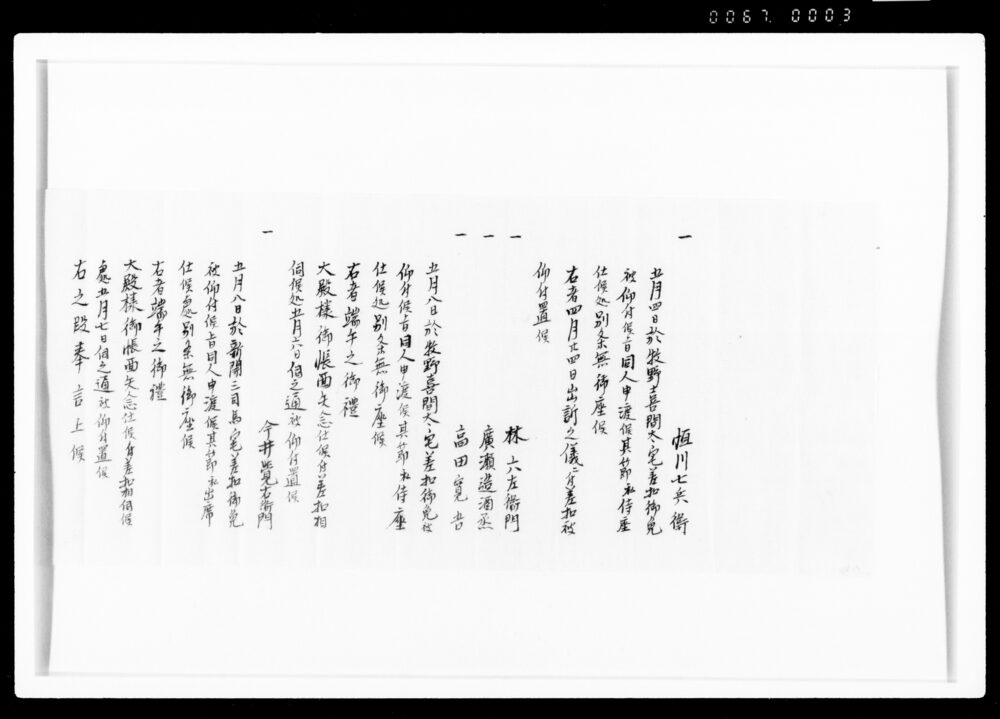 0067. 0003
一 恒川七兵衛
五月四日於牧野喜間太宅差扣御免
被仰付候旨同人申渡候其節私侍座
仕候処別条無御座候
右者四月廿四日出訴之儀ニ付差扣被
仰付置候
一 林六左衛門
一 廣瀬造酒丞
一 高田寛吾
五月八日於牧野喜間太宅差扣御免被
仰付候旨同人申渡候其節私侍座
仕候処別条無御座候
右者端午之御禮
大殿様御帳面失念仕候付差扣相
伺候処五月六日伺之通被仰付置候
一 今井覚右衛門
五月八日於新開三司馬宅差扣御免
被仰付候旨同人申渡候其節私出席
仕候處別条無御座候
右者端午之御禮
大殿様御帳面失念仕候付差扣相伺候
處五月七日伺之通被仰付置候
右之段奉言上候